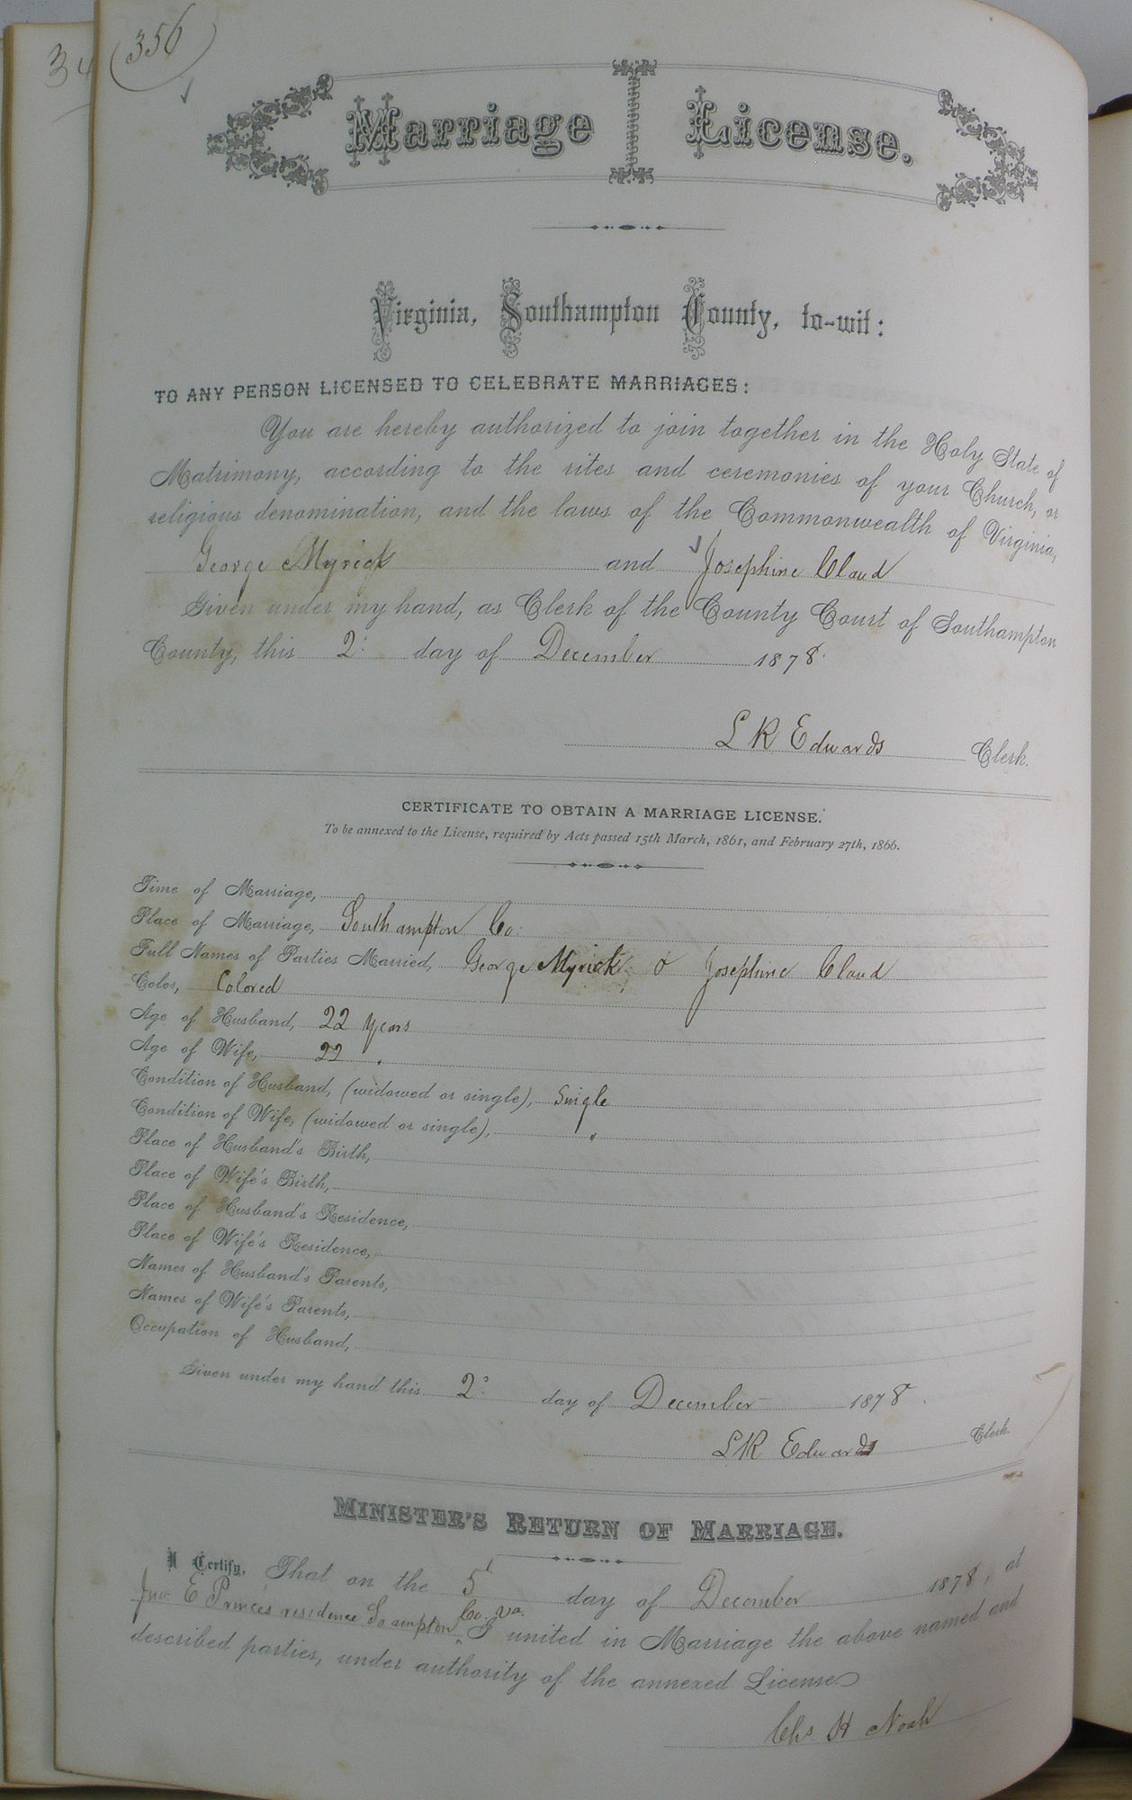 34
356
Marriage License.
Virginia, Southampton County, to-wit:
TO ANY PERSON LICENSED TO CELEBRATE MARRIAGES:
You are hereby authorized to join together in the Holy State of
Matrimony, according to the rites and ceremonies of your Church, or
religious denomination, and the laws of the Commonwealth of Virginia,
George Myrick and Josephine Claud
Given under my hand, as Clerk of the County Court of Southampton
County, this 2 day of December 1878.
L R Edwards Clerk.
CERTIFICATE TO OBTAIN A MARRIAGE LICENSE.
To be annexed to the License, required by Acts passed 15th March, 1861, and February 27th, 1866.
Time of Marriage,
Place of Marriage, Southampton Co:
Full Names of Parties Married, George Myrick & Josephine Claud
Color, Colored
Age of Husband, 22 years
Age of Wife, 22 "
Condition of Husband, (widowed or single), Single
Condition of Wife, (widowed or single), "
Place of Husband's Birth,
Place of Wife's Birth,
Place of Husband's Residence,
Place of Wife's Residence,
Names of Husband's Parents,
Names of Wife's Parents,
Occupation of Husband,
Given under my hand this 2 day of December 1878.
L R Edwards Clerk.
MINISTER'S RETURN OF MARRIAGE.
I Certify, That on the 5 day of December 1878, at
Jno E Princes residence So ampton Co. Va. I united in Marriage the above named and
described parties, under authority of the annexed License
Chs H Noah